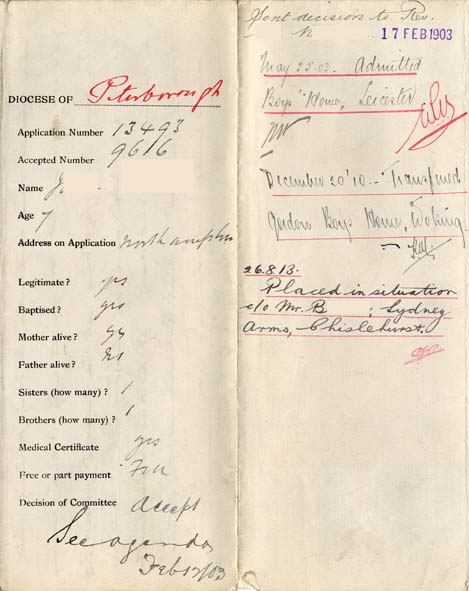 DIOCESE OF Peterborough
Application Number 13493
Accepted Number 9616
Name J
Age 7
Address on Application Northampton
Legitimate? yes
Baptised? yes
Mother alive? yes
Father alive?
Sisters (how many)? 1
Brothers (how many)? 1
Medical Certificate yes
Free or part payment Free
Decision of Committee accept
See agenda
Feb 17/03
Sent decision to Rev.
17 FEB 1903
May 25.03. Admitted
Boys' Home, Leicester
December 20 '10 - Transferred
Gordon Boys Home, Woking.
26.8.13.
Placed in situation
c/o Mr. B ; Sydney
Arms, Chislehurst.